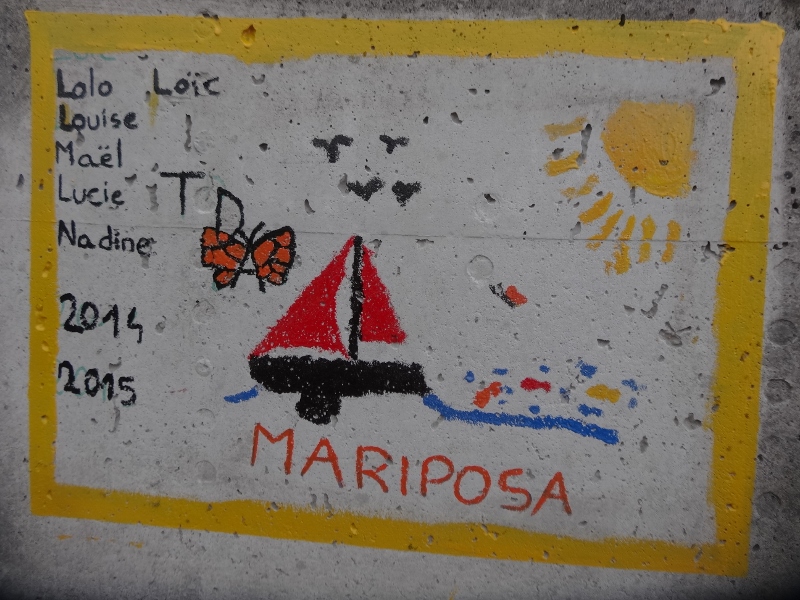 Lolo Loïc
Louise
Maël
Lucie
Nadine
TD
2014
2015
MARIPOSA